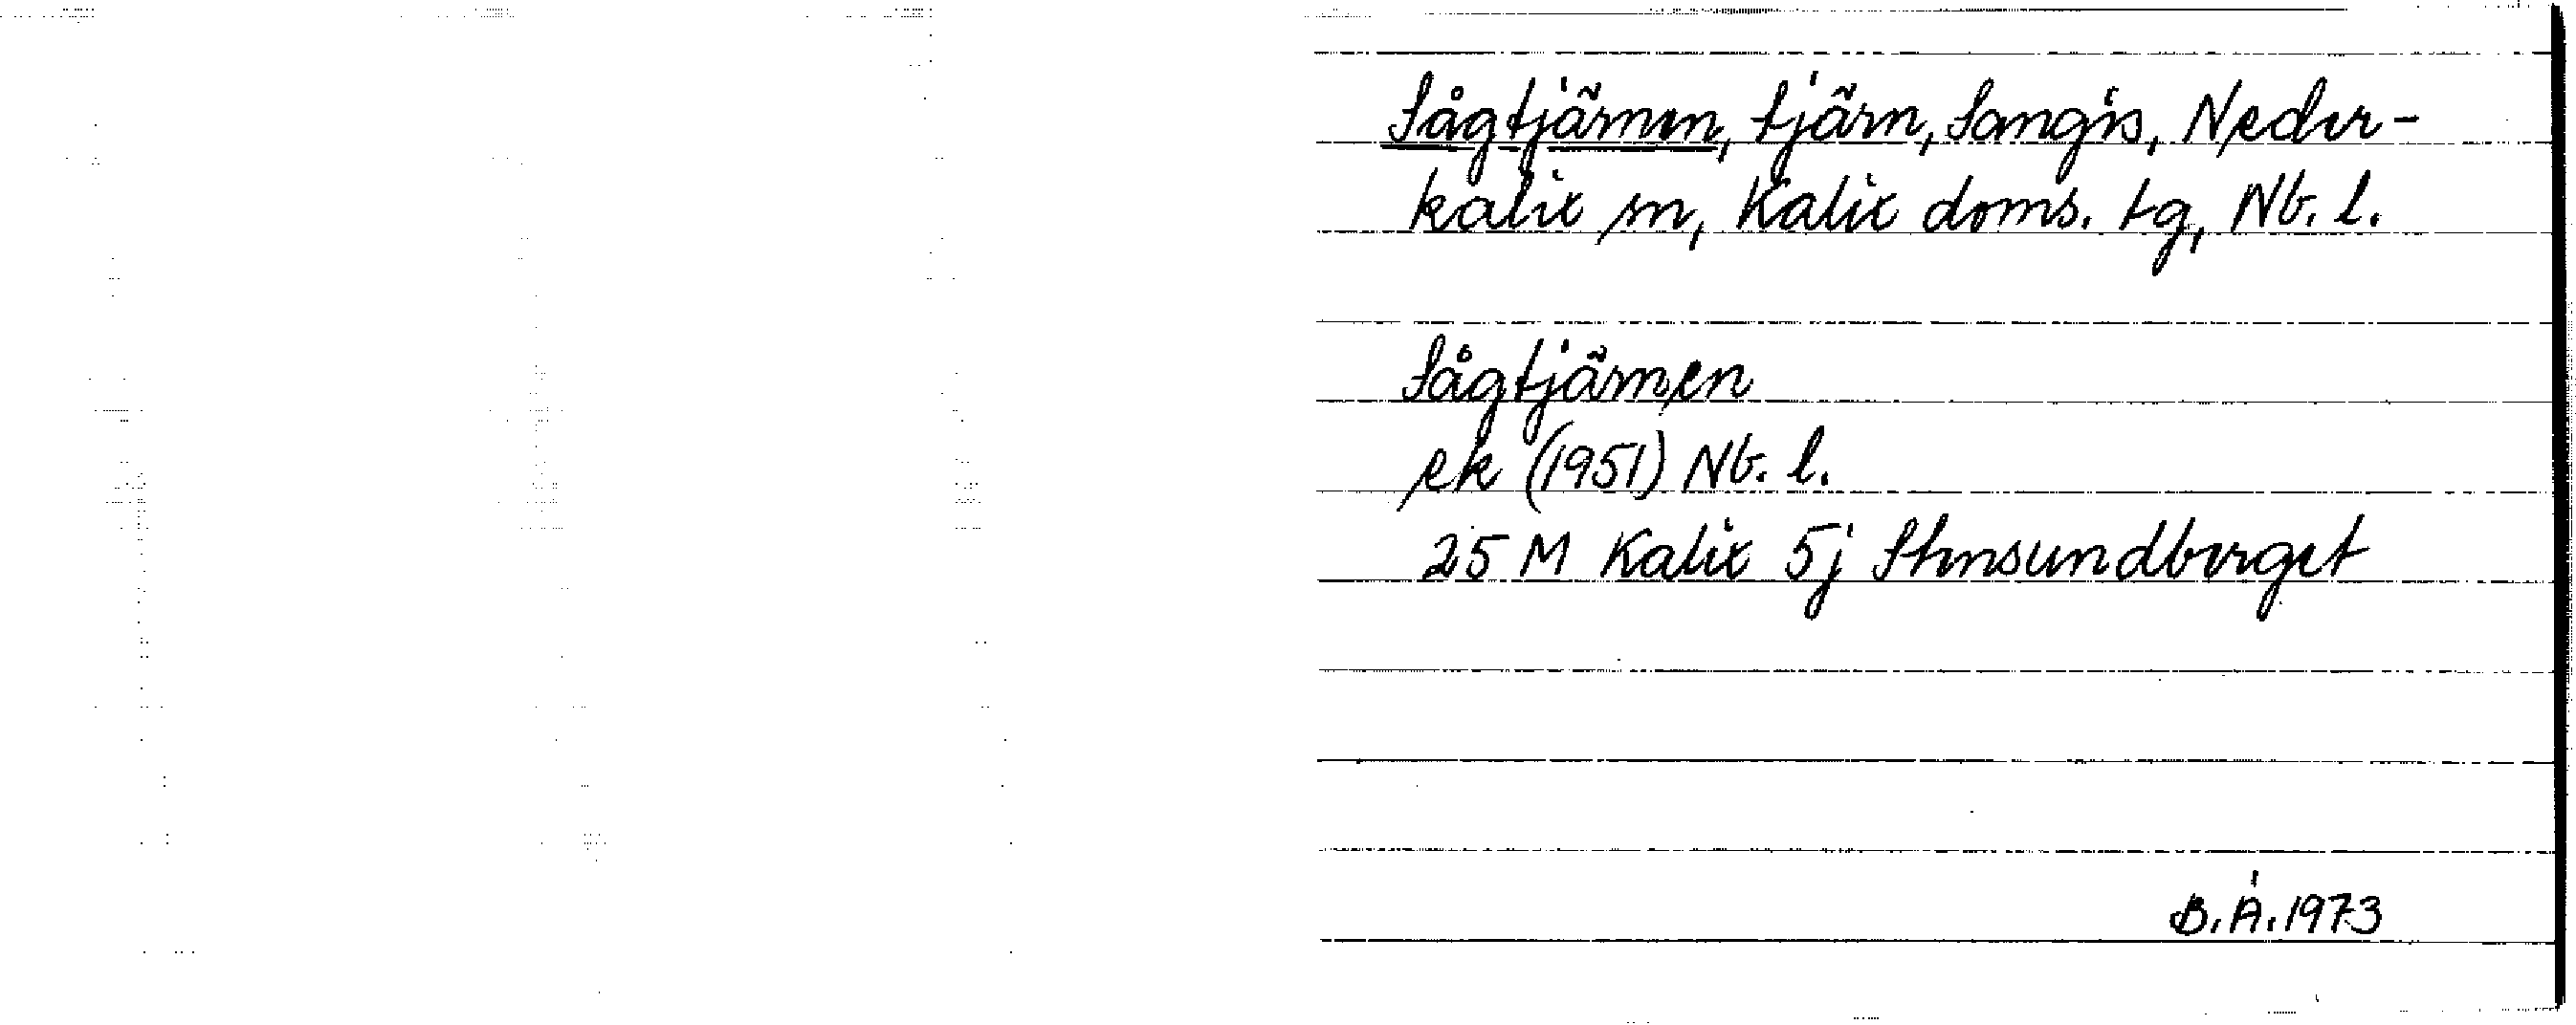 Sågtjärnen, tjärn, Sangis, Neder-
kalix sn, Kalix doms. tg, Nb. l.
Sågtjärnen
ek (1951) Nb. l.
25 M Kalix 5j Stensundberget
B.Å. 1973